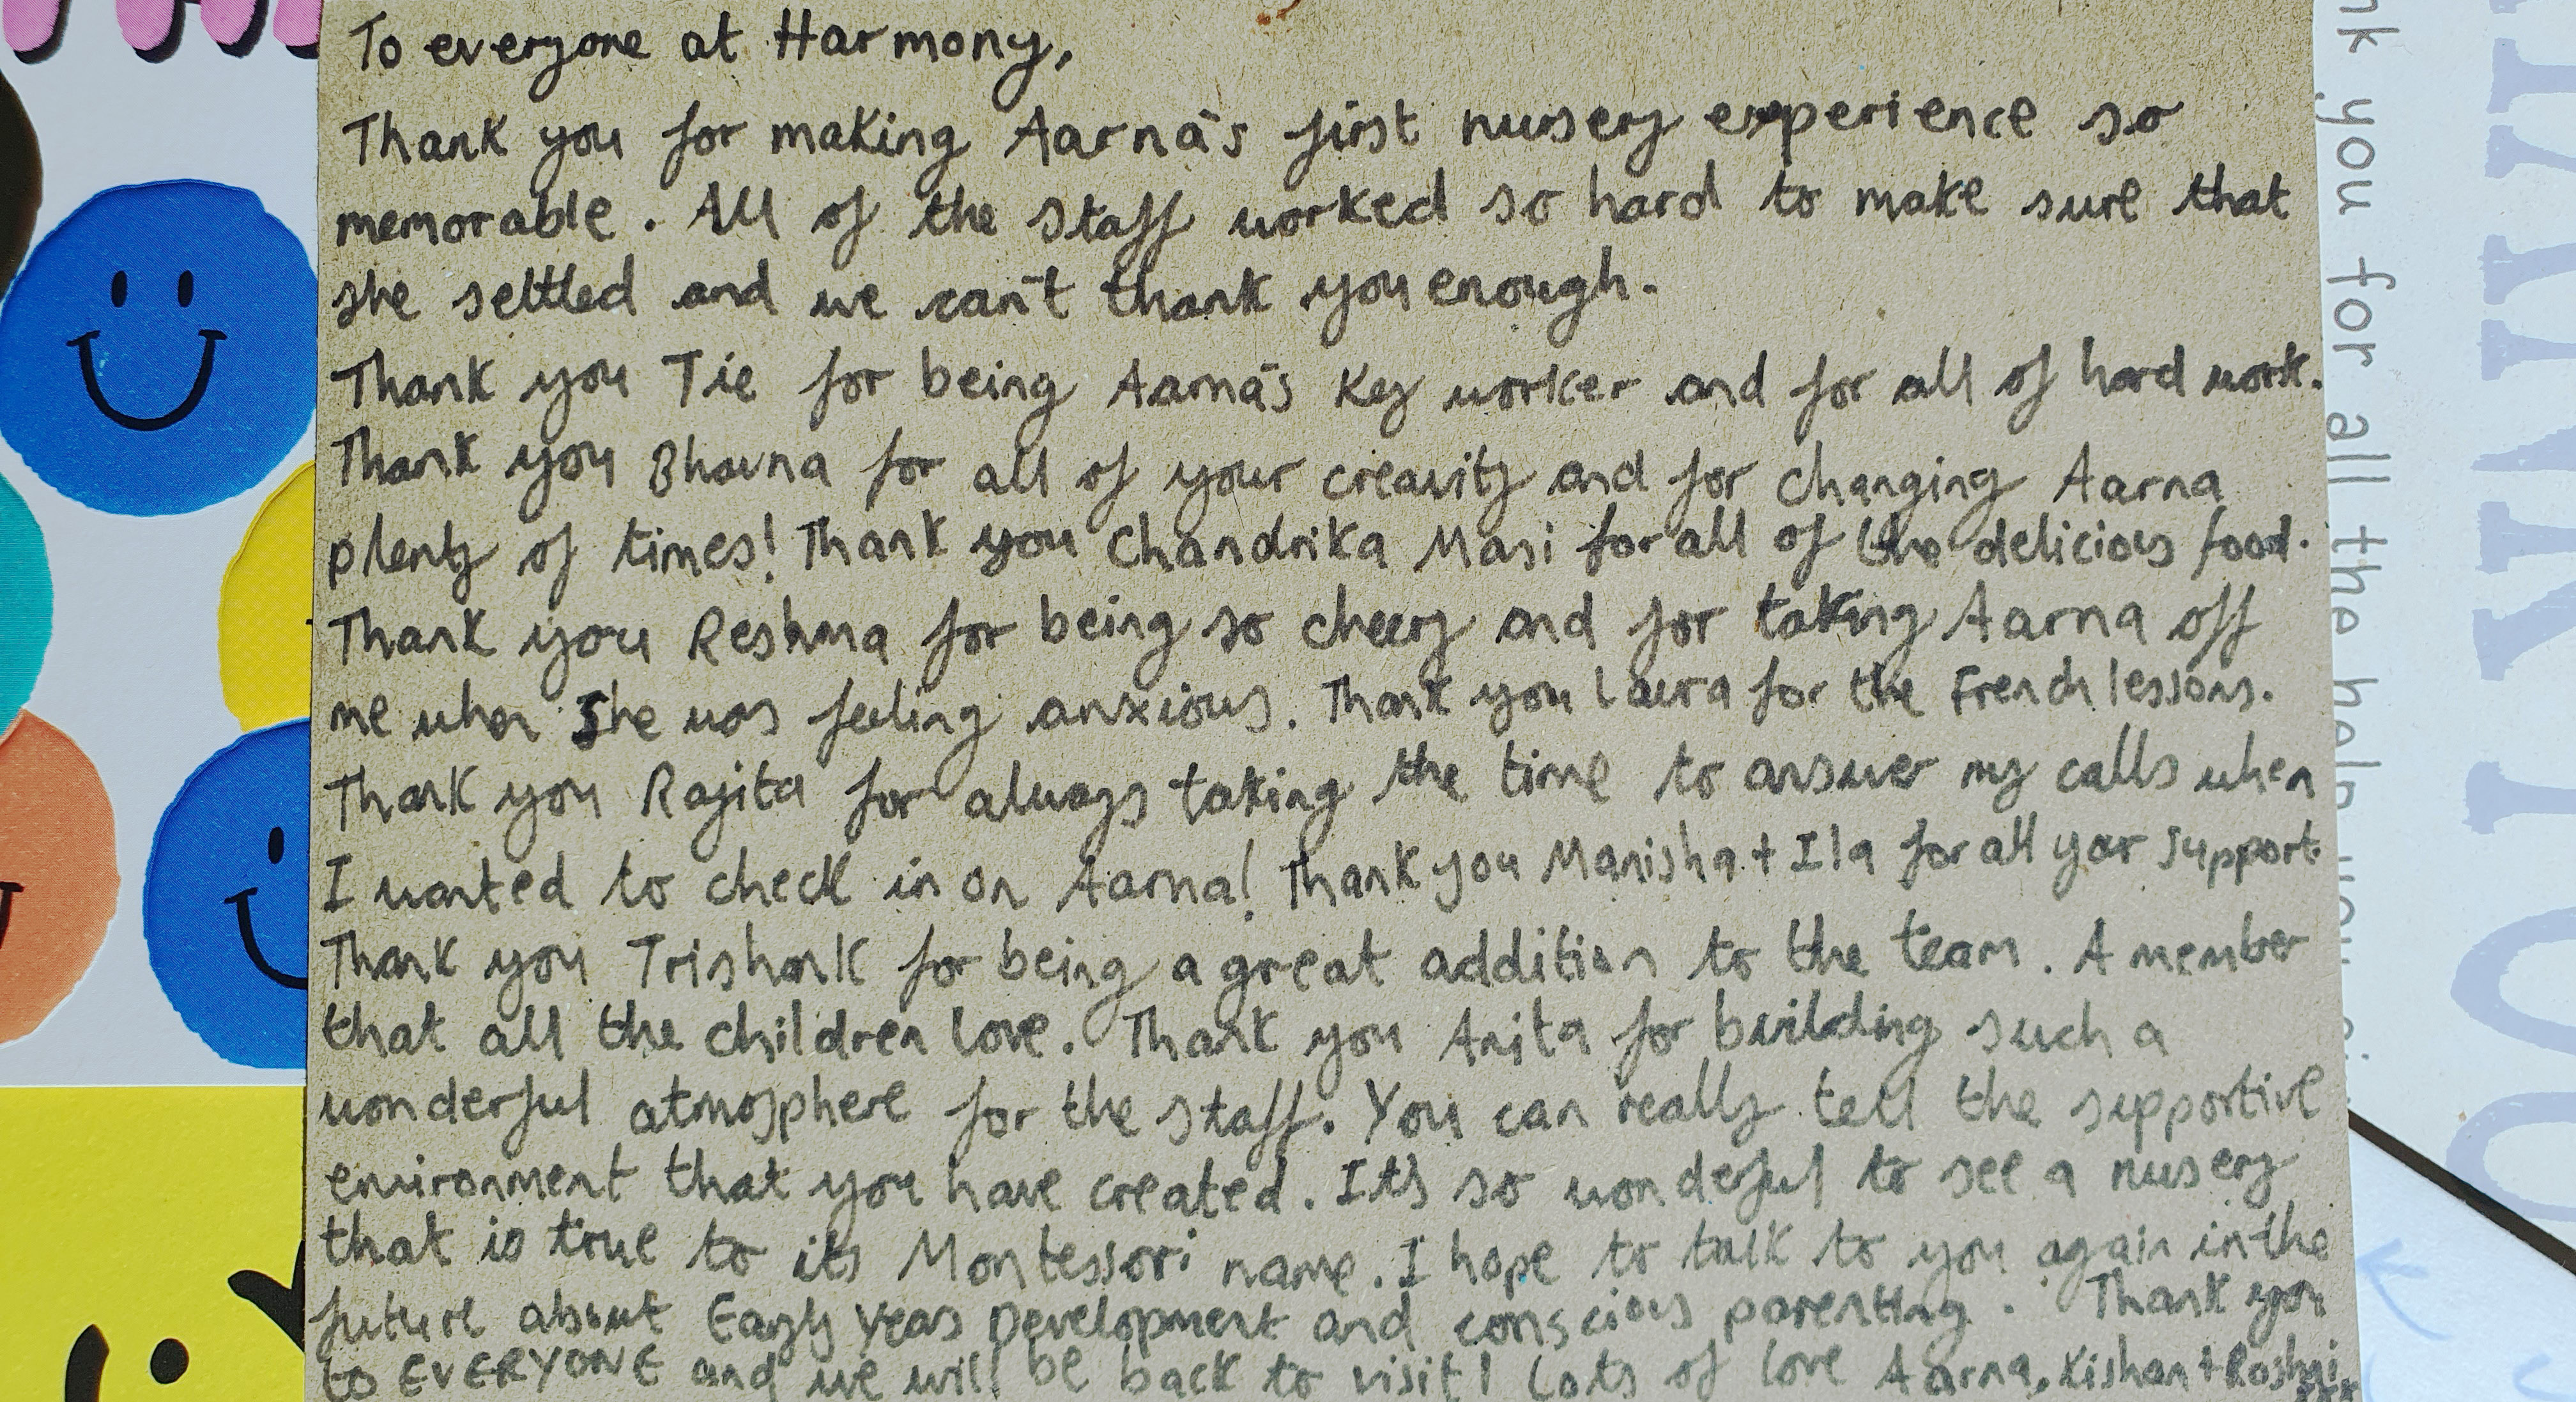 To everyone at Harmony,
Thank you for making Aarna's first nursery experience so
memorable. All of the staff worked so hard to make sure that
she settled and we can't thank you enough.
Thank you Tie for being Aarna's Key worker and for all of hard work.
Thank you Bhavna for all of your creavity and for changing Aarna
plenty of times! Thank you Chandrika Masi for all of the delicious food.
Thank you Reshma for being so cheery and for taking Aarna off
me when She was feeling anxious. Thank you Laura for the French lessons.
Thank you Rajita for always taking the time to answer my calls when
I wanted to check in on Aarna! Thank you Manisha + Ila for all your support.
Thank you Trishank for being a great addition to the team. A member
that all the children love. Thank you Anita for building such a
wonderful atmosphere for the staff. You can really tell the supportive
environment that you have created. It's so wonderful to see a nusery
that is true to its Montessori name. I hope to talk to you again in the
future about Early Years Development and conscious parenting. Thank you
to EVERYONE and we will be back to visit! Lots of love Aarna, Kishan + Roshni
xxx
nk you for all the help you